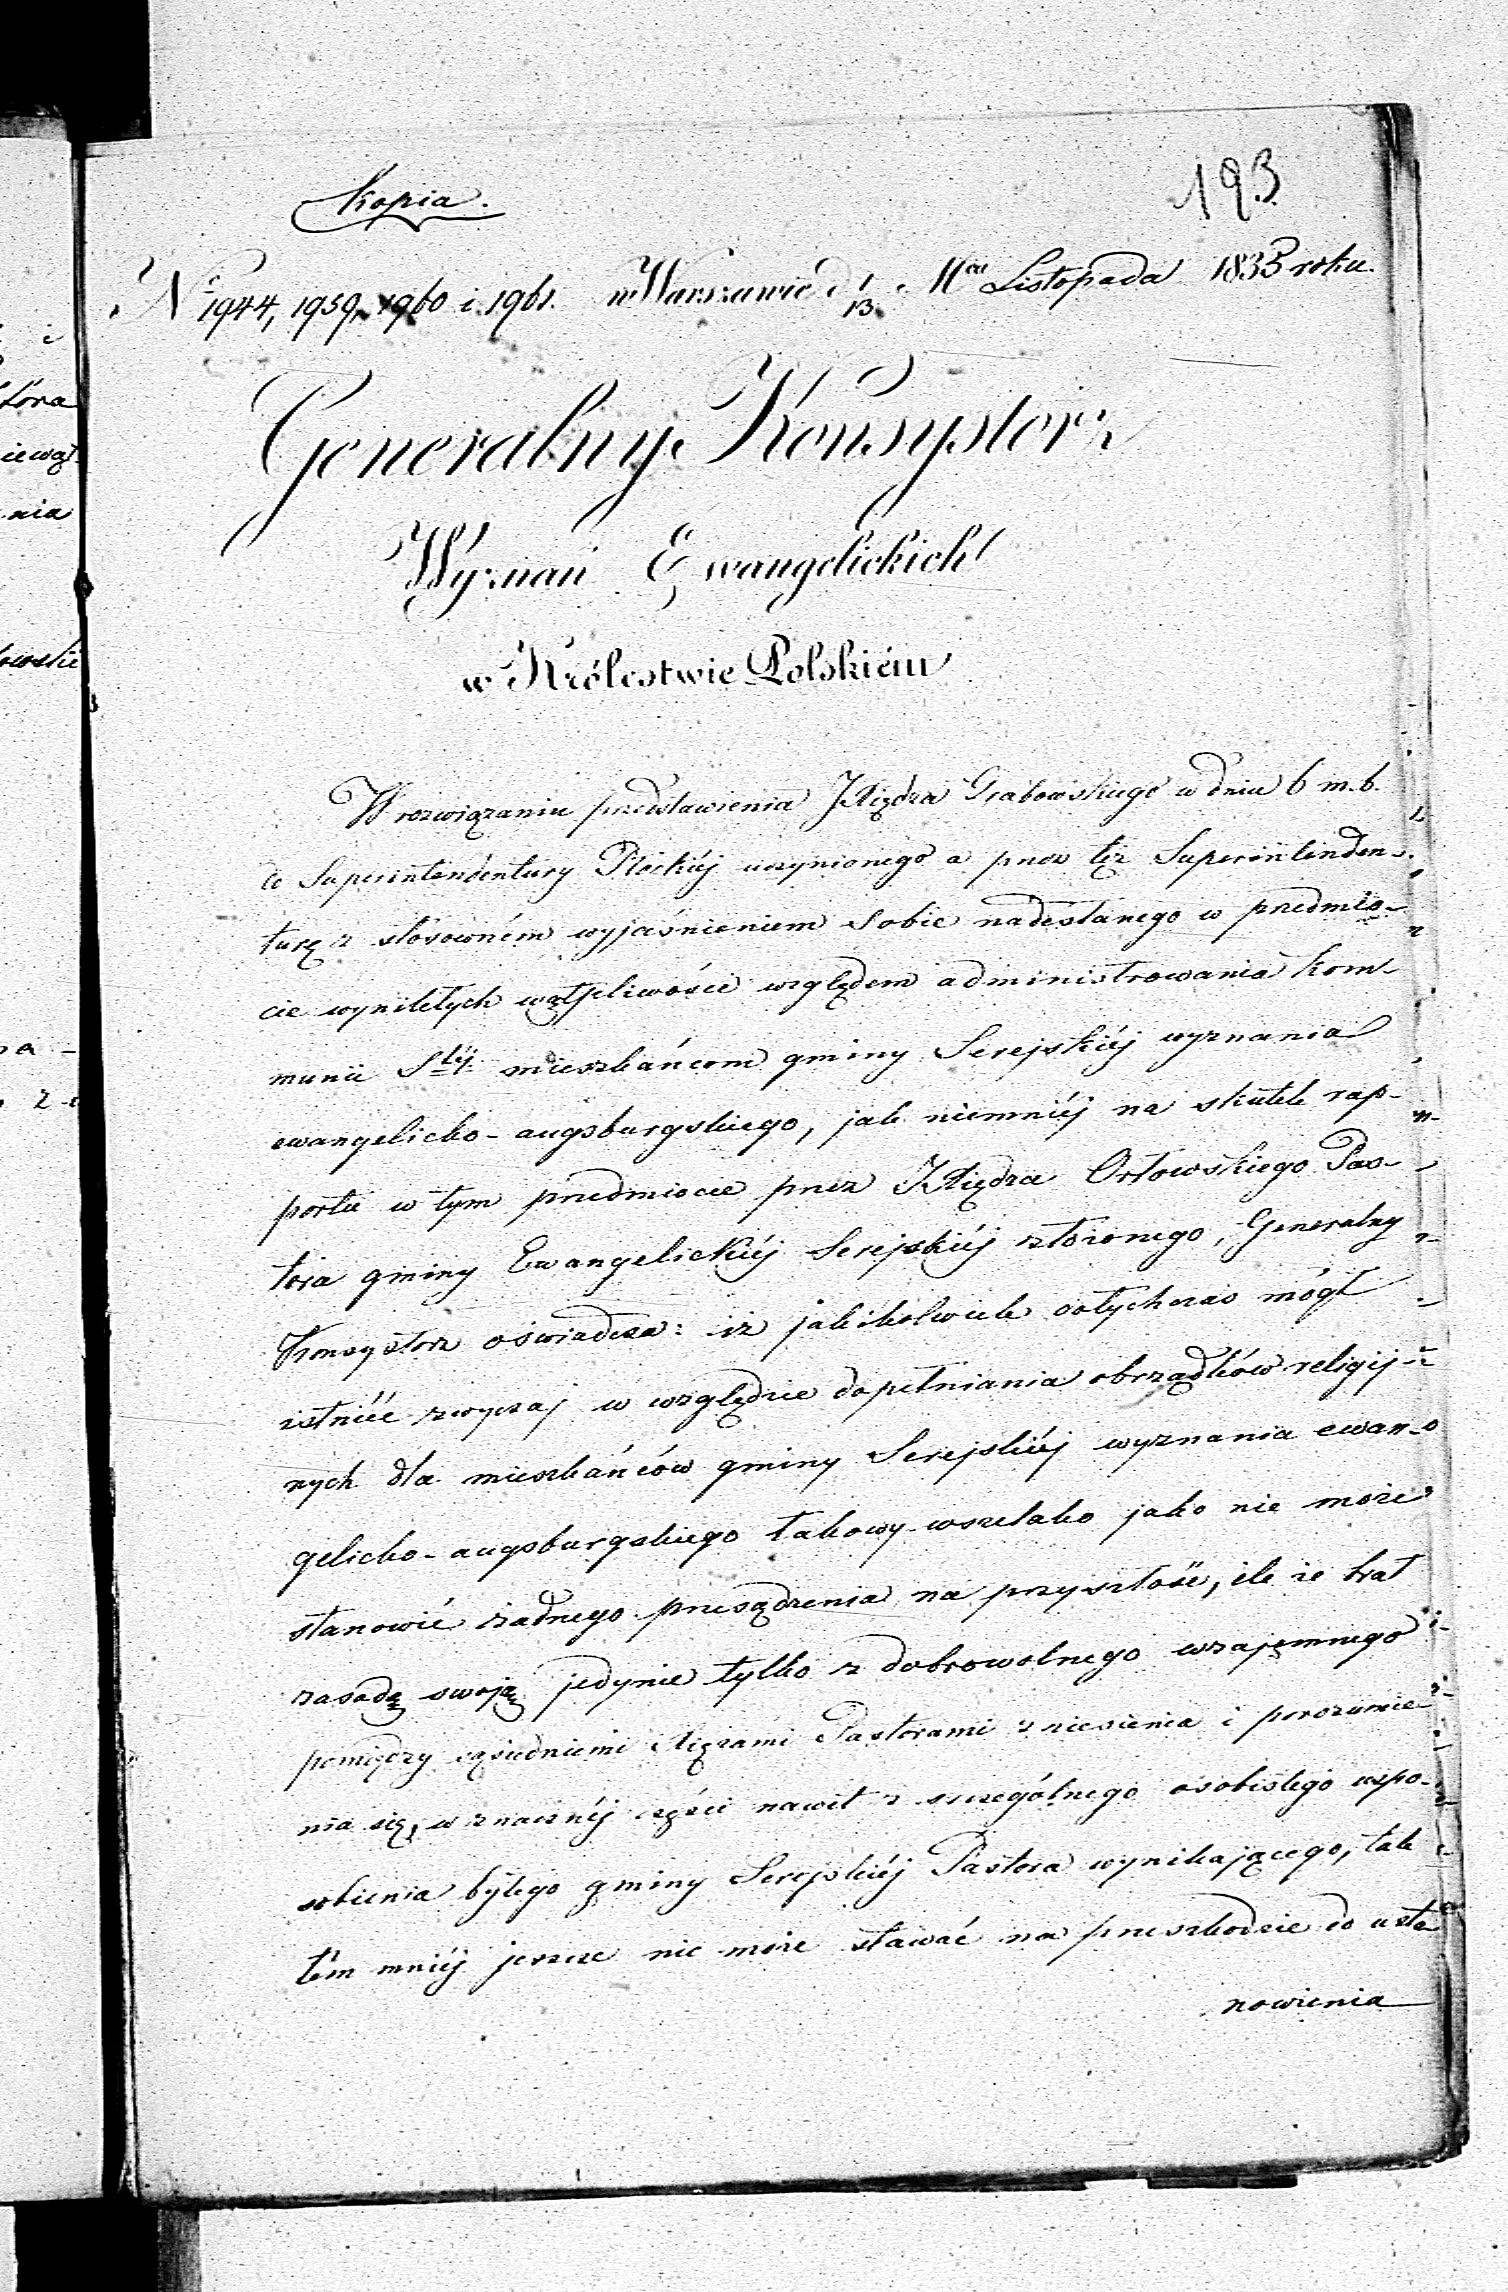 193
Kopia.
Nr 1944, 1959, 1960 i 1961. w Warszawie d 1/13 Mca Listopada 1833 roku.
Generalny Konsystorz
Wyznań Ewangelickich
w Królestwie Polskiém
W rozwiązaniu przedstawienia Xiędza Grabowskiego w dniu 6 m. b.
do Superintendentury Płockiéj uczynionego a przez też Superintenden-
turę z stosowném wyjaśnieniem sobie nadesłanego w przedmio-
cie wynikłych wątpliwości względem administrowania kom-
munii Stéj mieszkańcom gminy Serejskiéj wyznania
ewangelicko-augsburgskiego, jak niemniéj na skutek rap-
portu w tym przedmiocie przez Xiędza Orłowskiego Pas-
tora gminy Ewangelickiéj Serejskiéj złożonego, Generalny
Konsystorz oświadcza: iż jakikolwiek dotychczas mógł
istniéć zwyczaj w względzie dopełniania obrządków religij-
nych dla mieszkańców gminy Serejskiéj wyznania ewan-
gelicko-augsburgskiego takowy wszelako jako nie może
stanowić żadnego przesądzenia na przyszłość, ile że brał
zasadę swoją jedynie tylko z dobrowolnego wzajemnego
pomiędzy sąsiedniemi Xiężami Pastorami zniesienia i porozumie-
nia się, w znacznéj części nawet z szczególnego osobistego uspo-
sobienia byłego gminy Serejskiéj Pastora wynikającego, tak
tém mniéj jeszcze nie może stawać na przeszkodzie do usta
nowienia